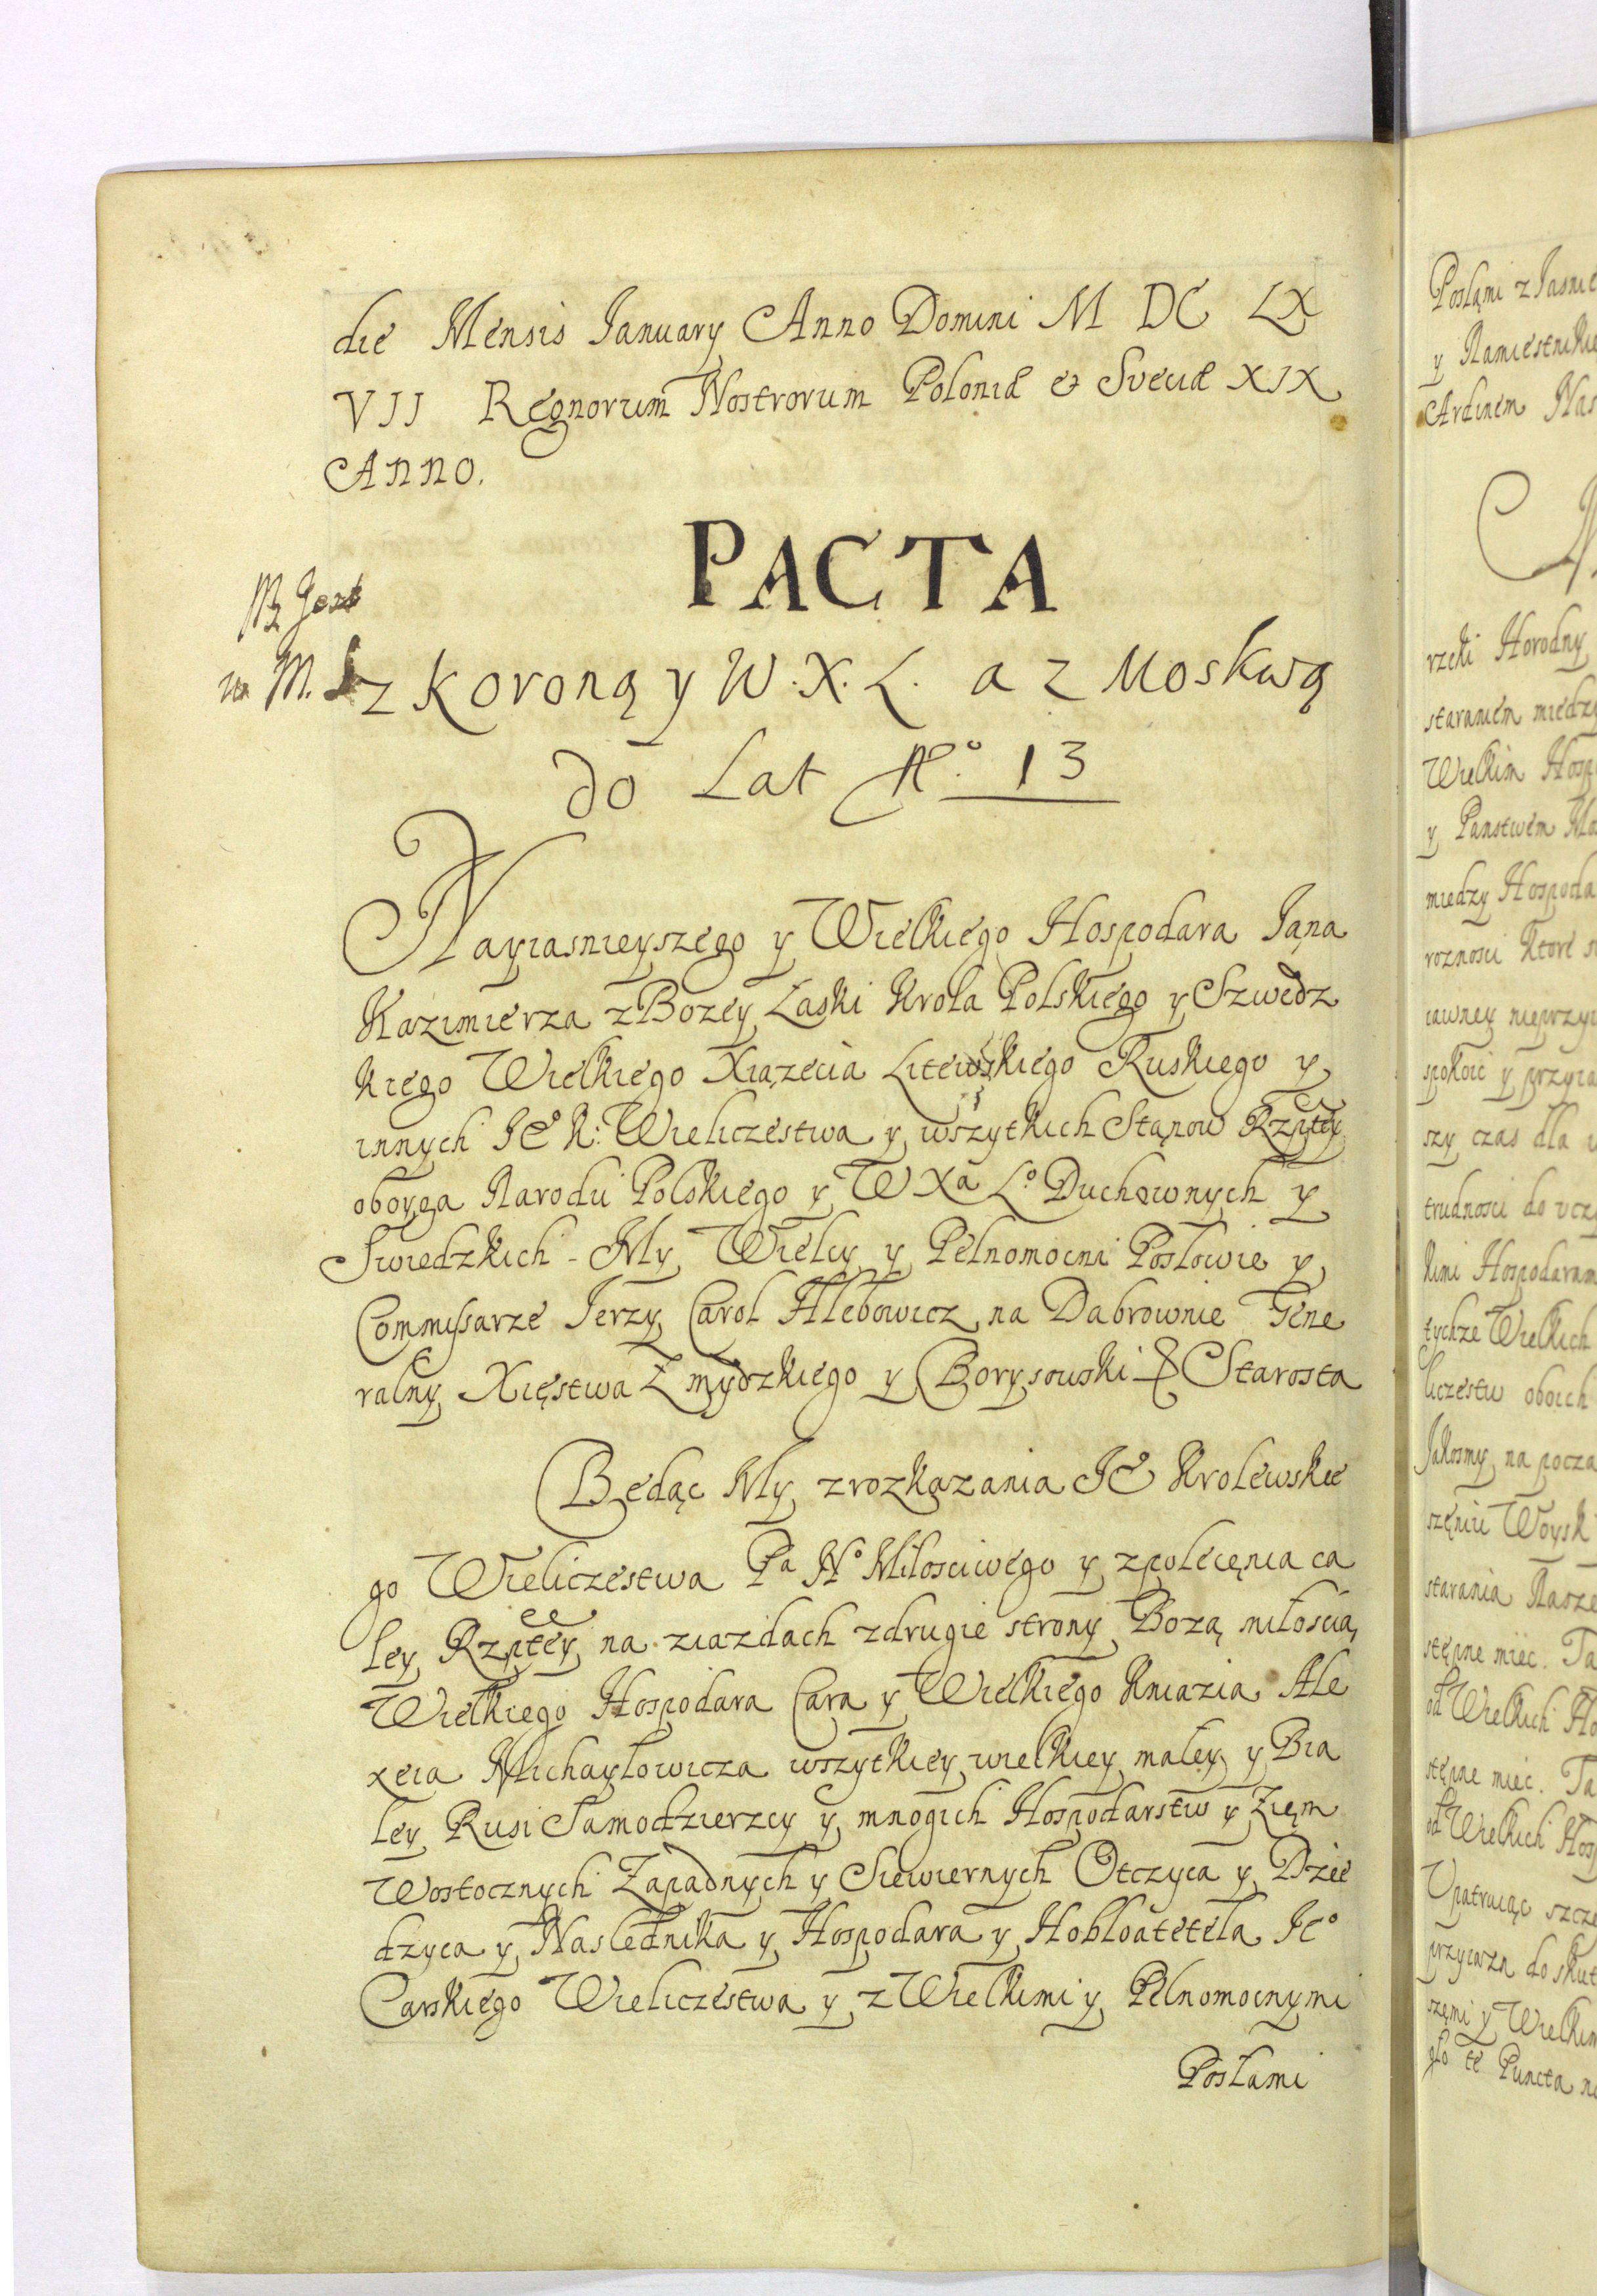 die Mensis January Anno Domini M DC LX
VII Regnorum Nostrorum Poloniæ et Sveciæ XIX
Anno.
PACTA
z Koroną y W. X. L. a z Moskwą
do Lat No. 13
Nayiasnieyszego y Wielkiego Hospodara Jana
Kazimierza z Bozey Łaski Krola Polskiego y Szwedz
kiego Wielkiego Xiązecia Litewskiego Ruskiego y
innych Je° K: Wieliczestwa y wszytkich Stanow Rzptey
oboyga Narodu Polskiego y W Xa L° Duchownych y
Swiedzkich - My Wielcy y Pełnomocni Posłowie y
Commissarze Jerzy Carol Hlebowicz na Dabrownie Gene
ralny Xięstwa Zmydzkiego y Borysowski & Starosta
Będąc My z rozkazania Je° Krolewskie
go Wieliczestwa Pa N° Miłosciwego y z polecęnia ca
łey Rzptey na ziazdach z drugie strony Bozą miłoscią
Wielkiego Hospodara Cara y Wielkiego Kniazia Ale
xeia Michayłowicza wszytkiey wielkiey małey y Bia
łey Rusi Samodzierzcy y mnogich Hospodarstw y Zięm
Wostocznych Zapadnych y Siewiernych Otczyca y Dzie
dzyca y Naslednika y Hospodara y Hobloatetela Je°
Carskiego Wieliczestwa y z Wielkimi y Pełnomocnymi
Posłami
Posłąmi z Jasnie
y Namiestniki
Ardinem Nas
rzcki Horodny
staraniem miedzy
Wielkim Hosp
y Panstwem Mo
miedzy Hospoda
roznosci ktore s
spokoic y przyia
szy czas dla
trudnosci do
kimi Hospodaram
tychze Wielkich
liczestw oboich
Jakosmy na pocza
Woysk
starania Nasze
stępne miec. Ta
od Wielkich Ho
stępne miec. Ta
od Wielkich Hosp
Upatruiąc szcze
do skut
szemi y Wielkim
te Puncta na